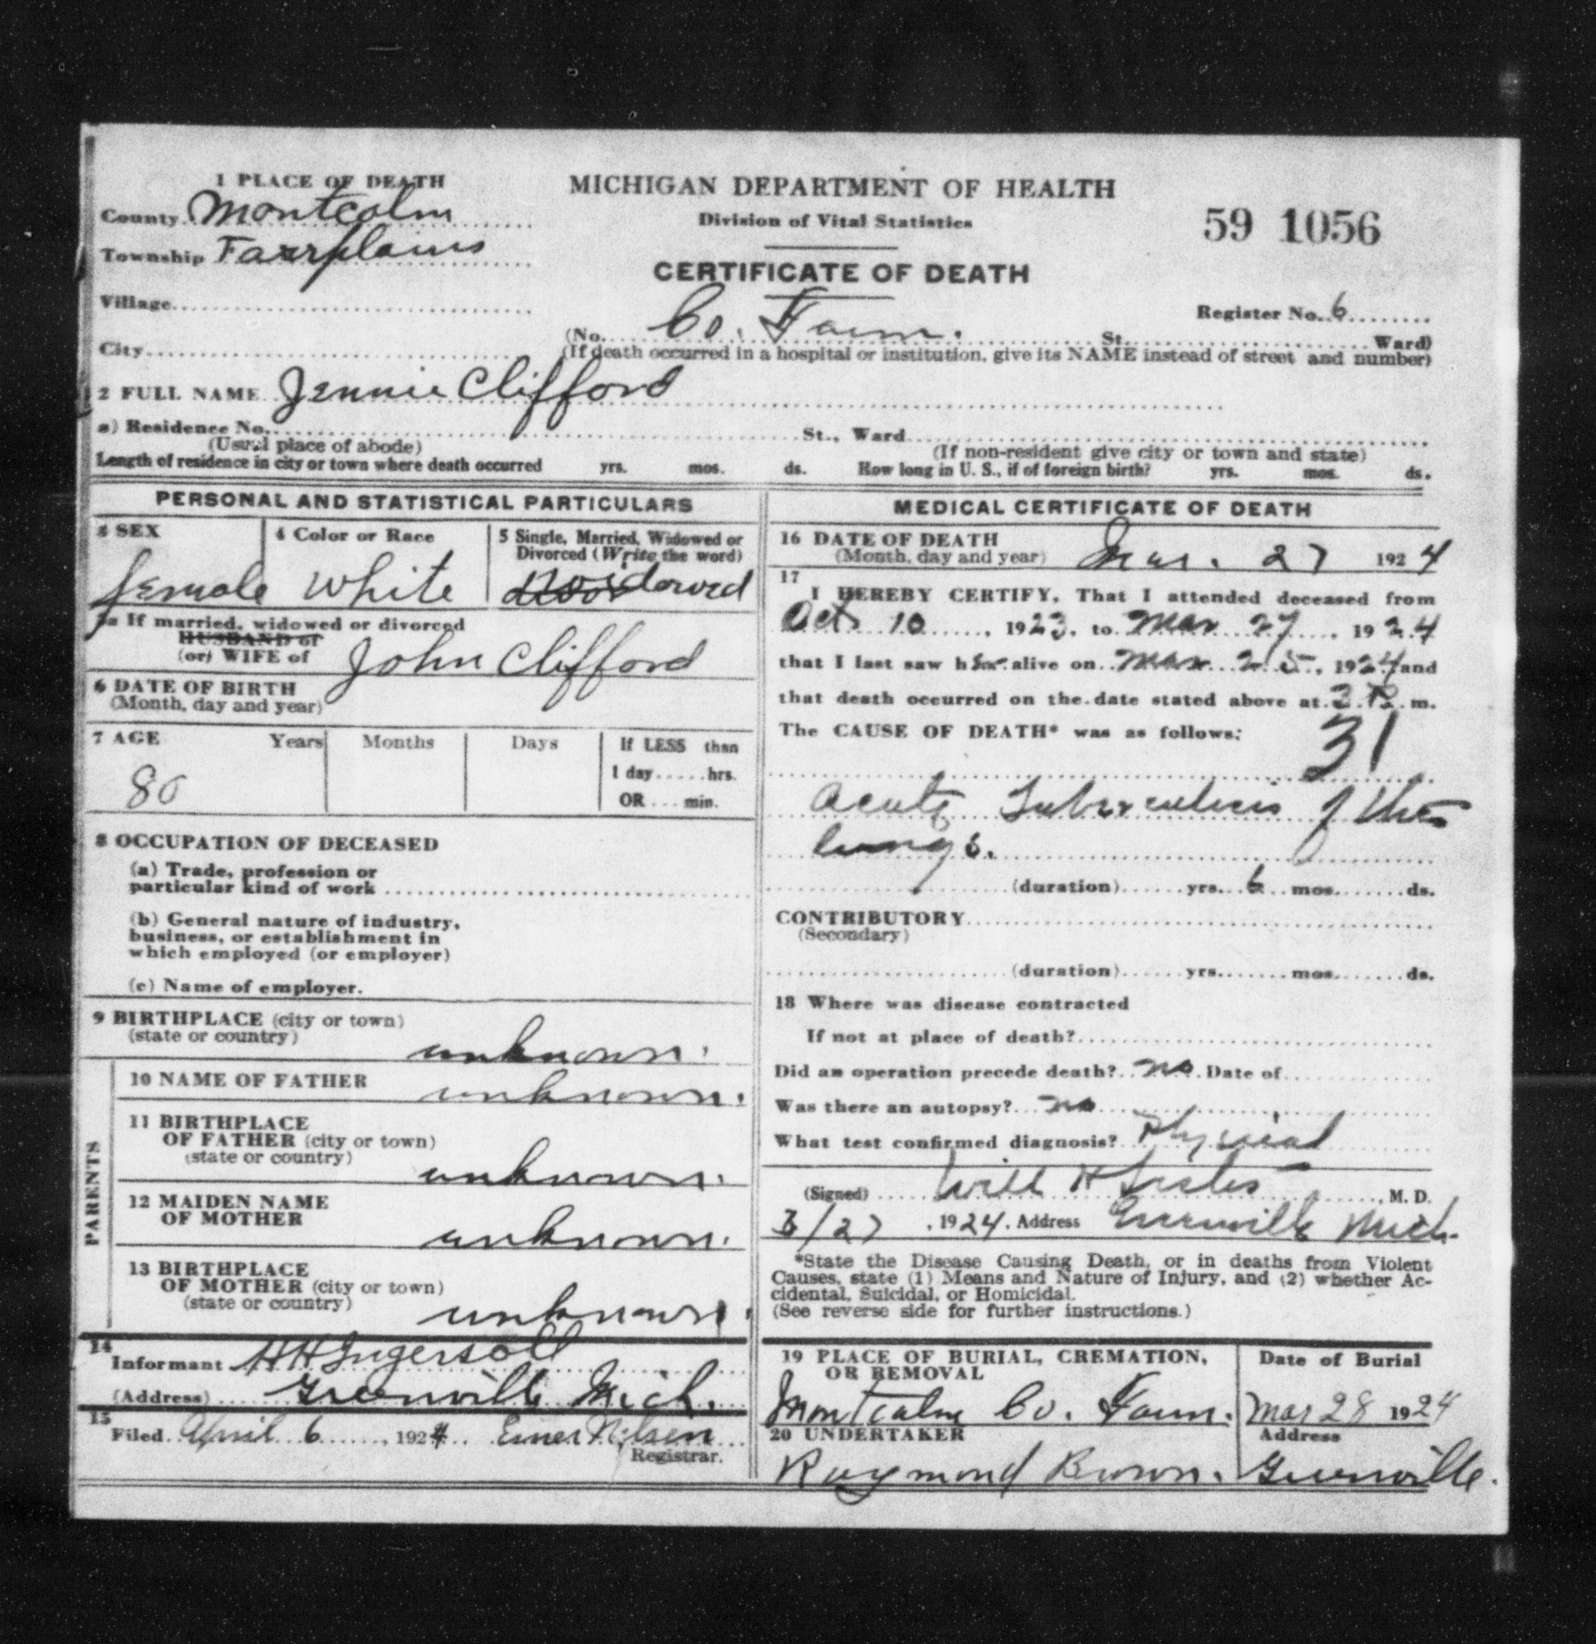 1 PLACE OF DEATH
County Montcalm
Township Fairplains
Village
City
MICHIGAN DEPARTMENT OF HEALTH
Division of Vital Statistics
CERTIFICATE OF DEATH
59 1056
Register No. 6
(No. Co. Farm. St. Ward)
(If death occurred in a hospital or institution, give its NAME instead of street and number)
2 FULL NAME Jennie Clifford
a) Residence No. St., Ward
(Usual place of abode) (If non-resident give city or town and state)
Length of residence in city or town where death occurred yrs. mos. ds. How long in U. S., if of foreign birth? yrs. mos. ds.
PERSONAL AND STATISTICAL PARTICULARS
3 SEX 4 Color or Race 5 Single, Married, Widowed or
Divorced (Write the word)
female White Widowed
5a If married, widowed or divorced
HUSBAND of
(or) WIFE of John Clifford
6 DATE OF BIRTH
(Month, day and year)
7 AGE Years Months Days If LESS than
1 day.....hrs.
OR ... min.
80
8 OCCUPATION OF DECEASED
(a) Trade, profession or
particular kind of work
(b) General nature of industry,
business, or establishment in
which employed (or employer)
(c) Name of employer.
9 BIRTHPLACE (city or town)
(state or country) unknown.
PARENTS
10 NAME OF FATHER unknown.
11 BIRTHPLACE
OF FATHER (city or town)
(state or country) unknown.
12 MAIDEN NAME
OF MOTHER unknown.
13 BIRTHPLACE
OF MOTHER (city or town)
(state or country) unknown.
14
Informant H H Ingersoll
(Address) Greenville Mich.
15
Filed April 6, 1924 Emer Nilsen
Registrar.
MEDICAL CERTIFICATE OF DEATH
16 DATE OF DEATH
(Month, day and year) Mar. 27 1924
17
I HEREBY CERTIFY, That I attended deceased from
Oct 10, 1923, to Mar 27, 1924
that I last saw her alive on Mar 25, 1924 and
that death occurred on the date stated above at 3 P. m.
The CAUSE OF DEATH* was as follows:
31
Acute Tuberculosis of the
lungs.
(duration) yrs. 6 mos. ds.
CONTRIBUTORY
(Secondary)
(duration) yrs. mos. ds.
18 Where was disease contracted
If not at place of death?
Did an operation precede death? no Date of
Was there an autopsy? no
What test confirmed diagnosis? Physical
(Signed) Will H , M. D.
3/27, 1924. Address Greenville Mich.
*State the Disease Causing Death, or in deaths from Violent
Causes, state (1) Means and Nature of Injury, and (2) whether Ac-
cidental, Suicidal, or Homicidal.
(See reverse side for further instructions.)
19 PLACE OF BURIAL, CREMATION,
OR REMOVAL Date of Burial
Montcalm Co. Farm. Mar 28 1924
20 UNDERTAKER Address
Raymond Brown. Greenville.